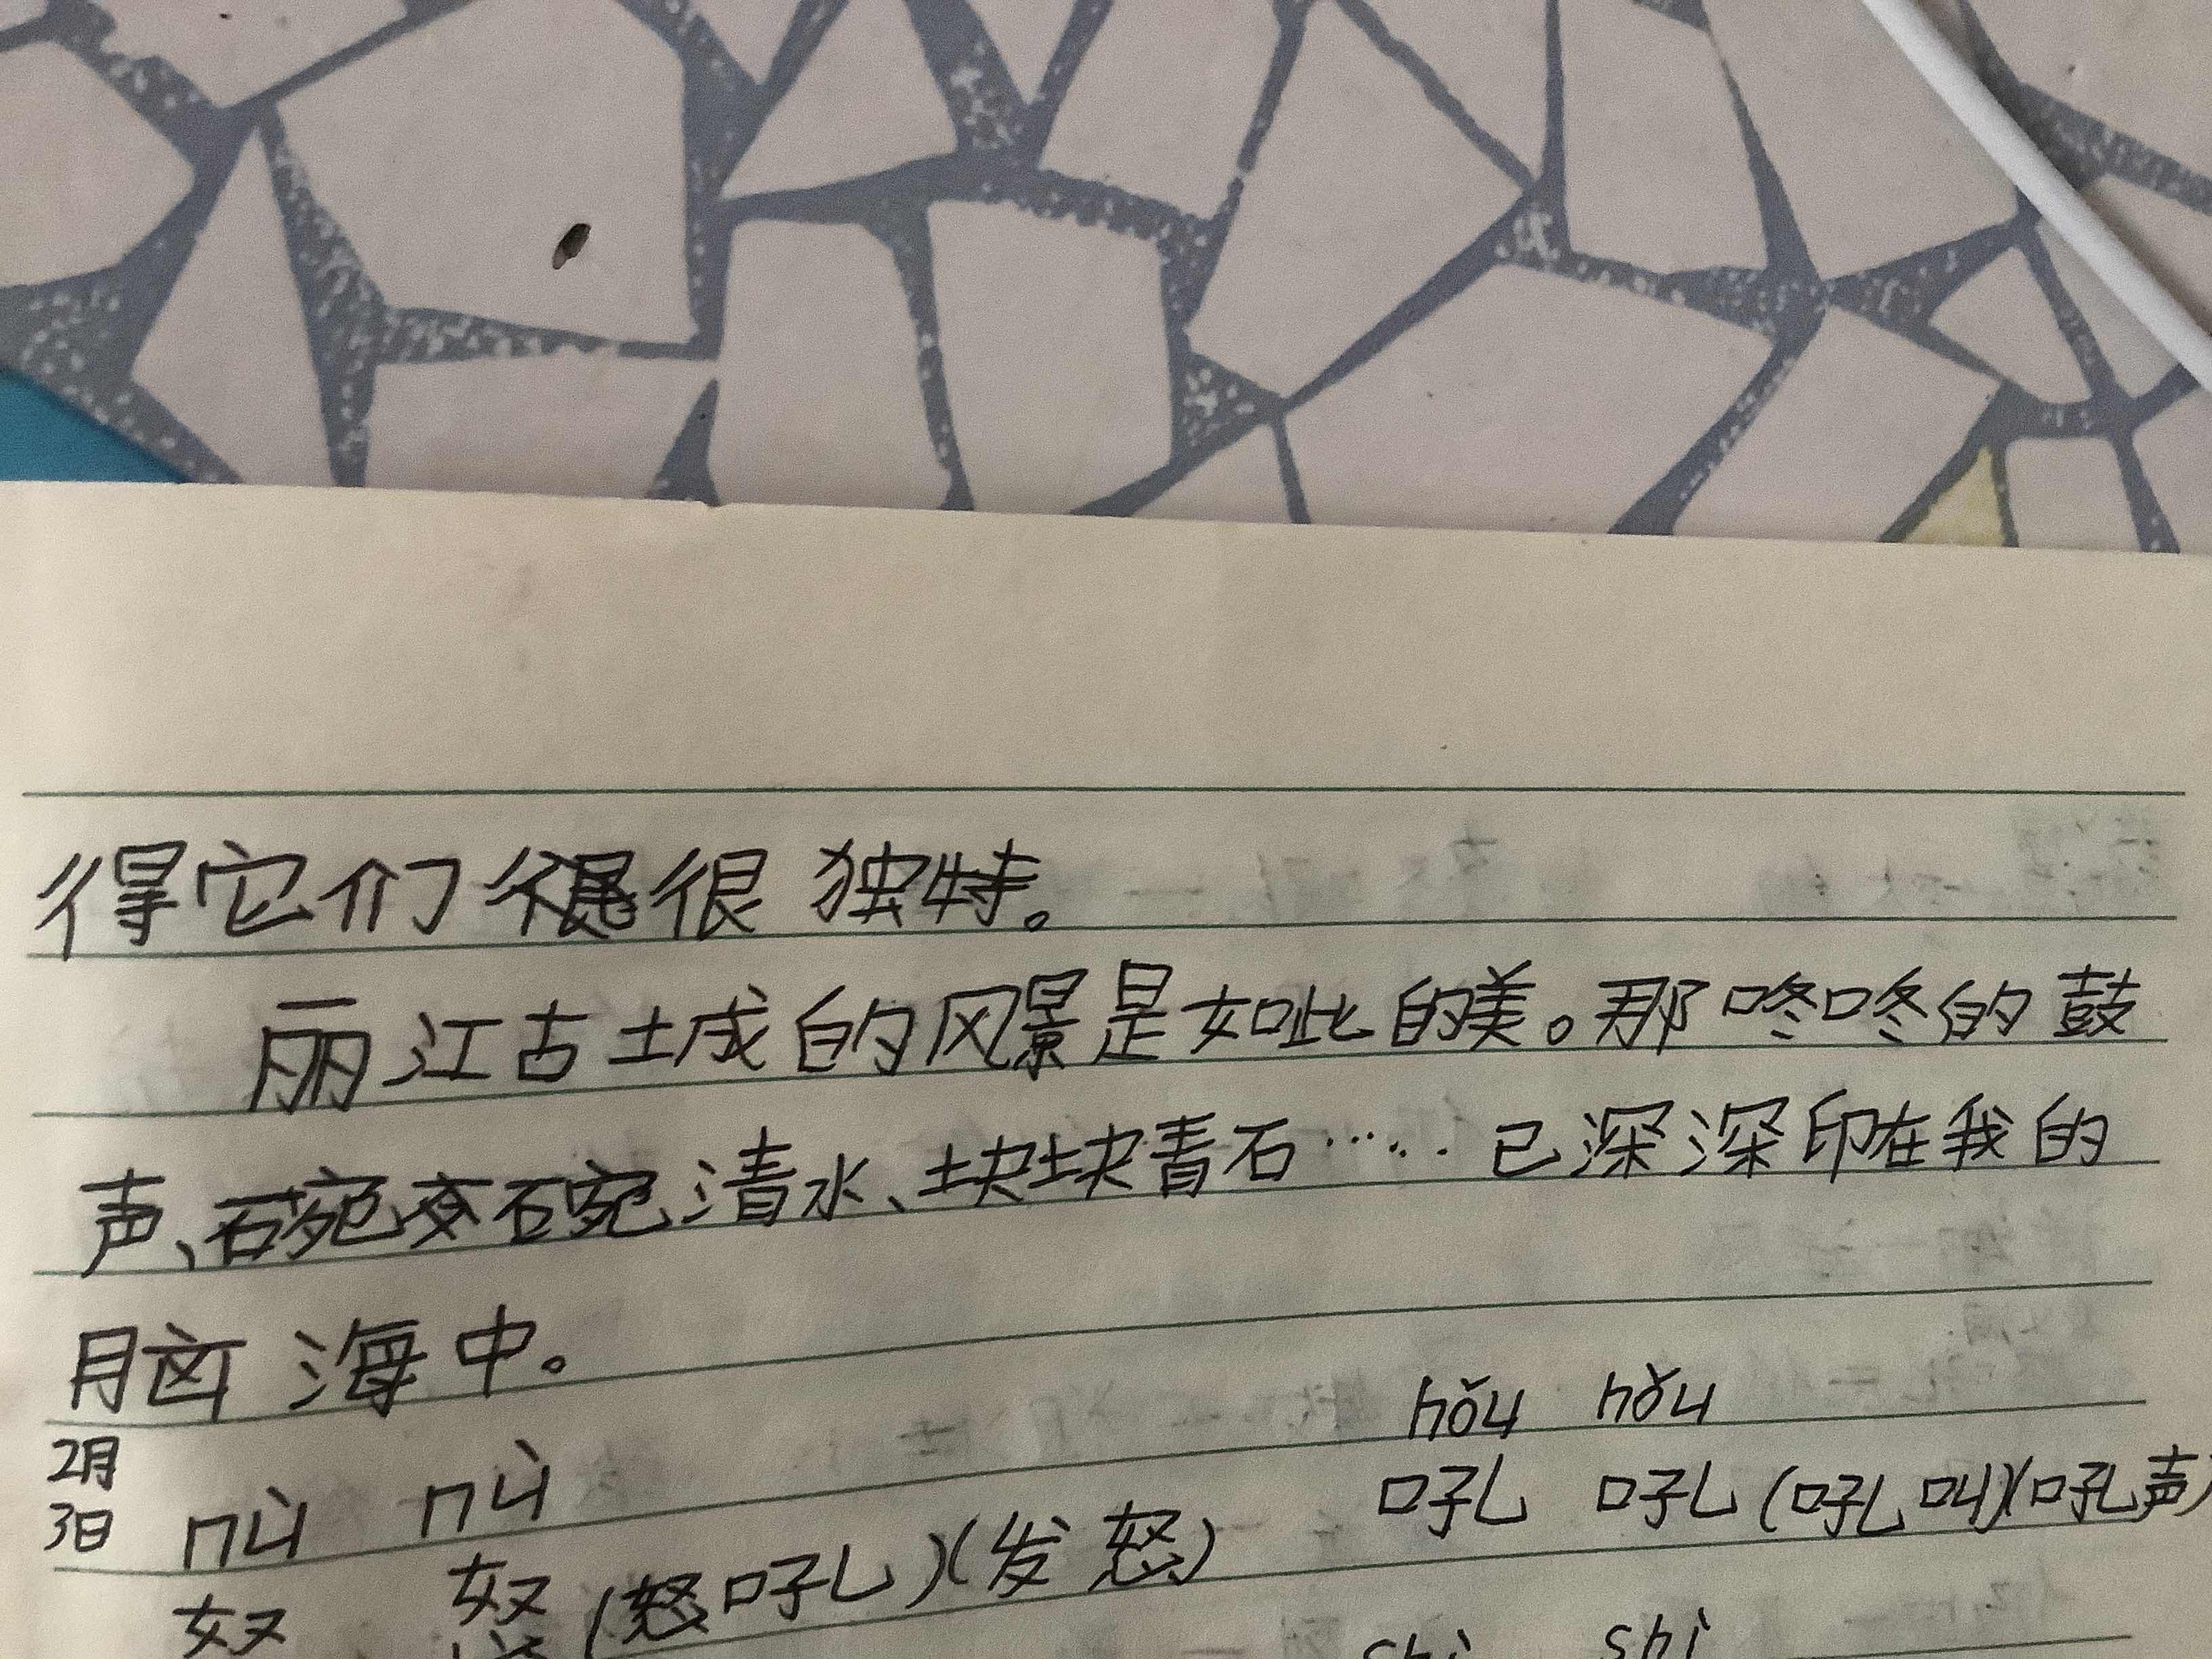 得它们很独特。
丽江古城的风景是如此的美。那咚咚的鼓
声、碗碗清水、块块青石……已深深印在我的
脑海中。
hǒu hǒu
2月
3日 nù nù
吼 吼(吼叫)(吼声)
怒(怒吼)(发怒)
shì shì